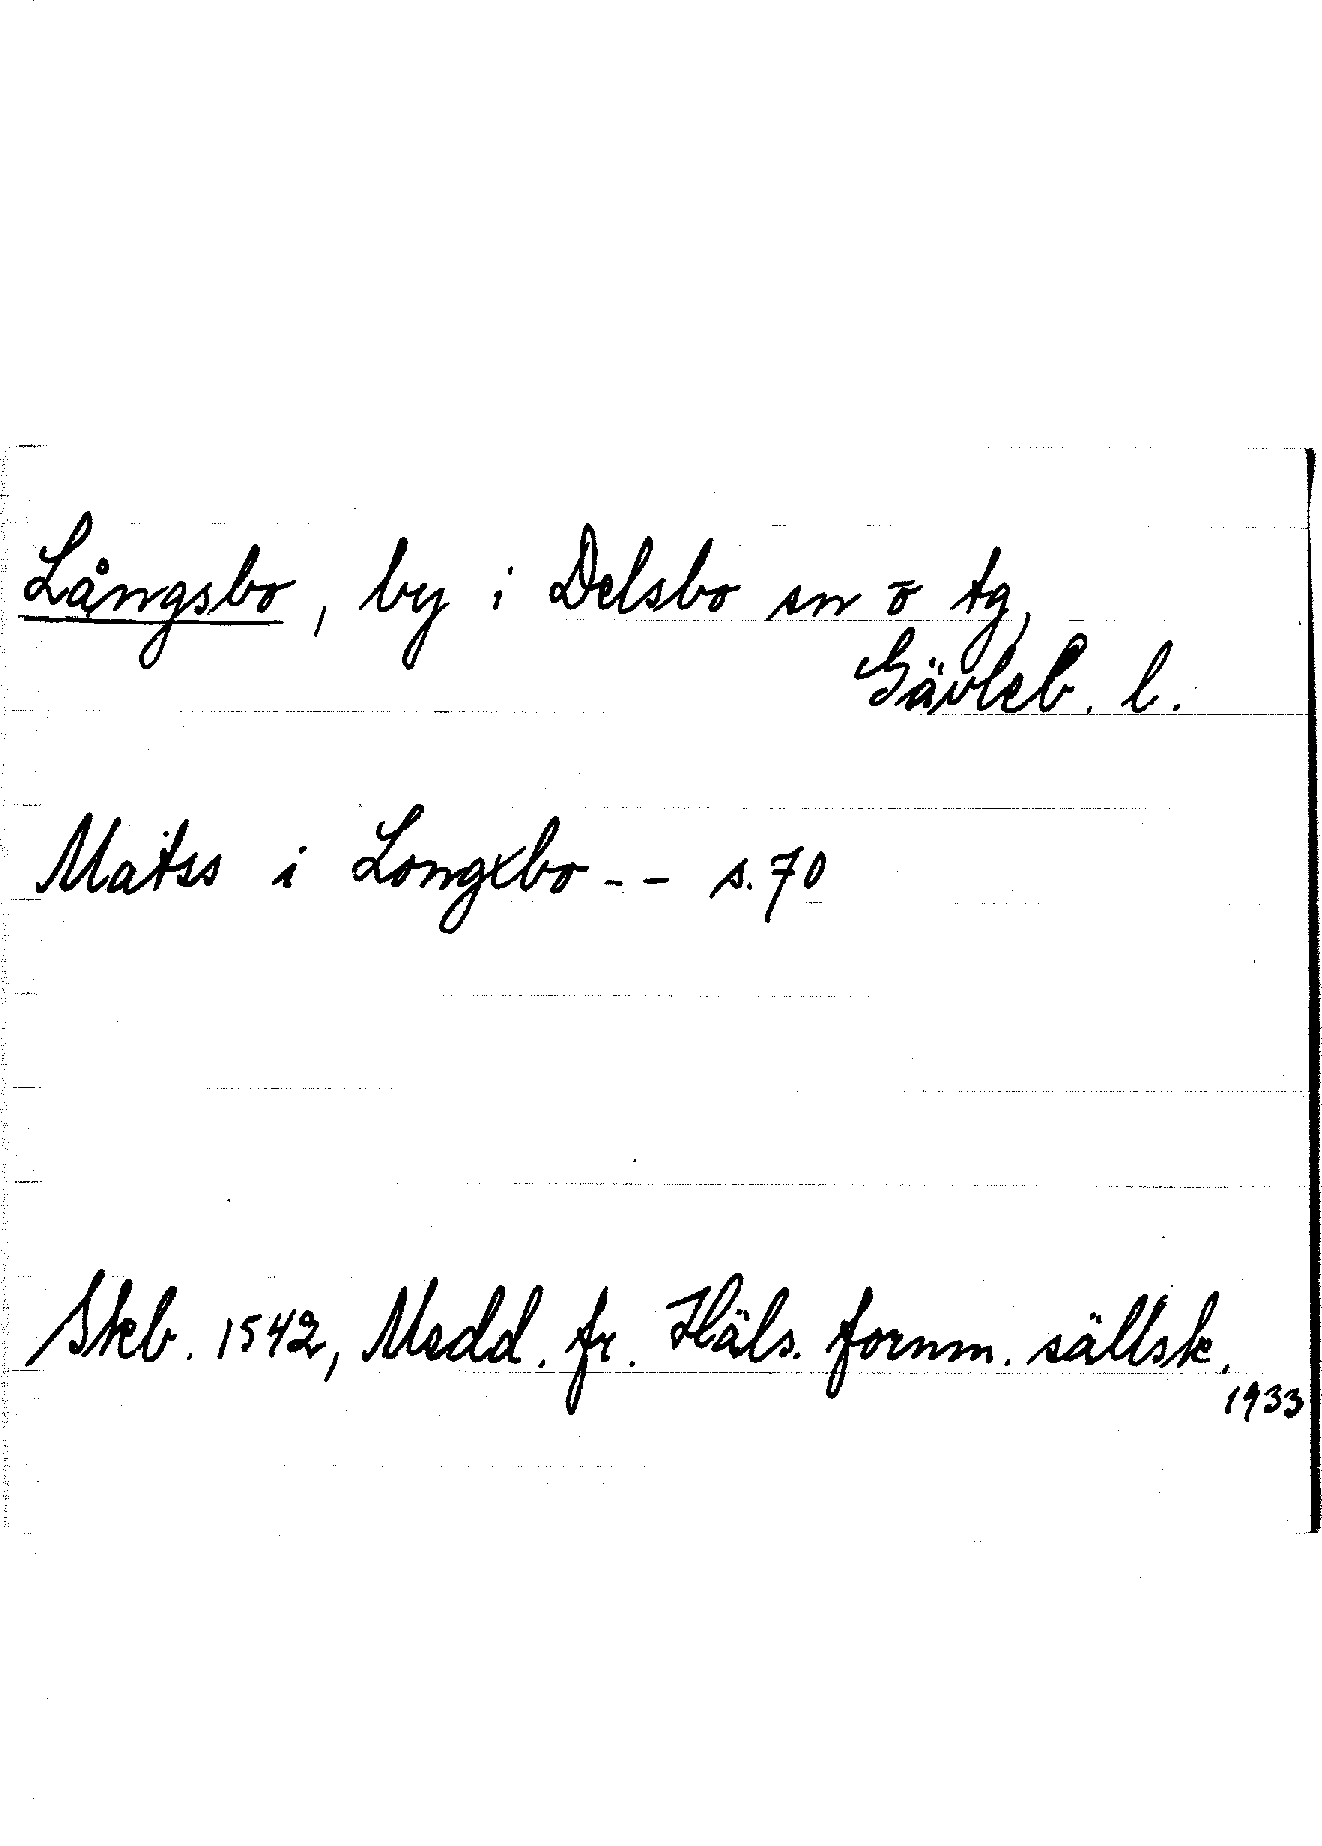 Långsbo, by i Delsbo sn o tg,
Gävleb. l.
Matss i Longxbo -- s. 70
Skb. 1542, Medd. fr. Häls. fornm. sällsk.
1933